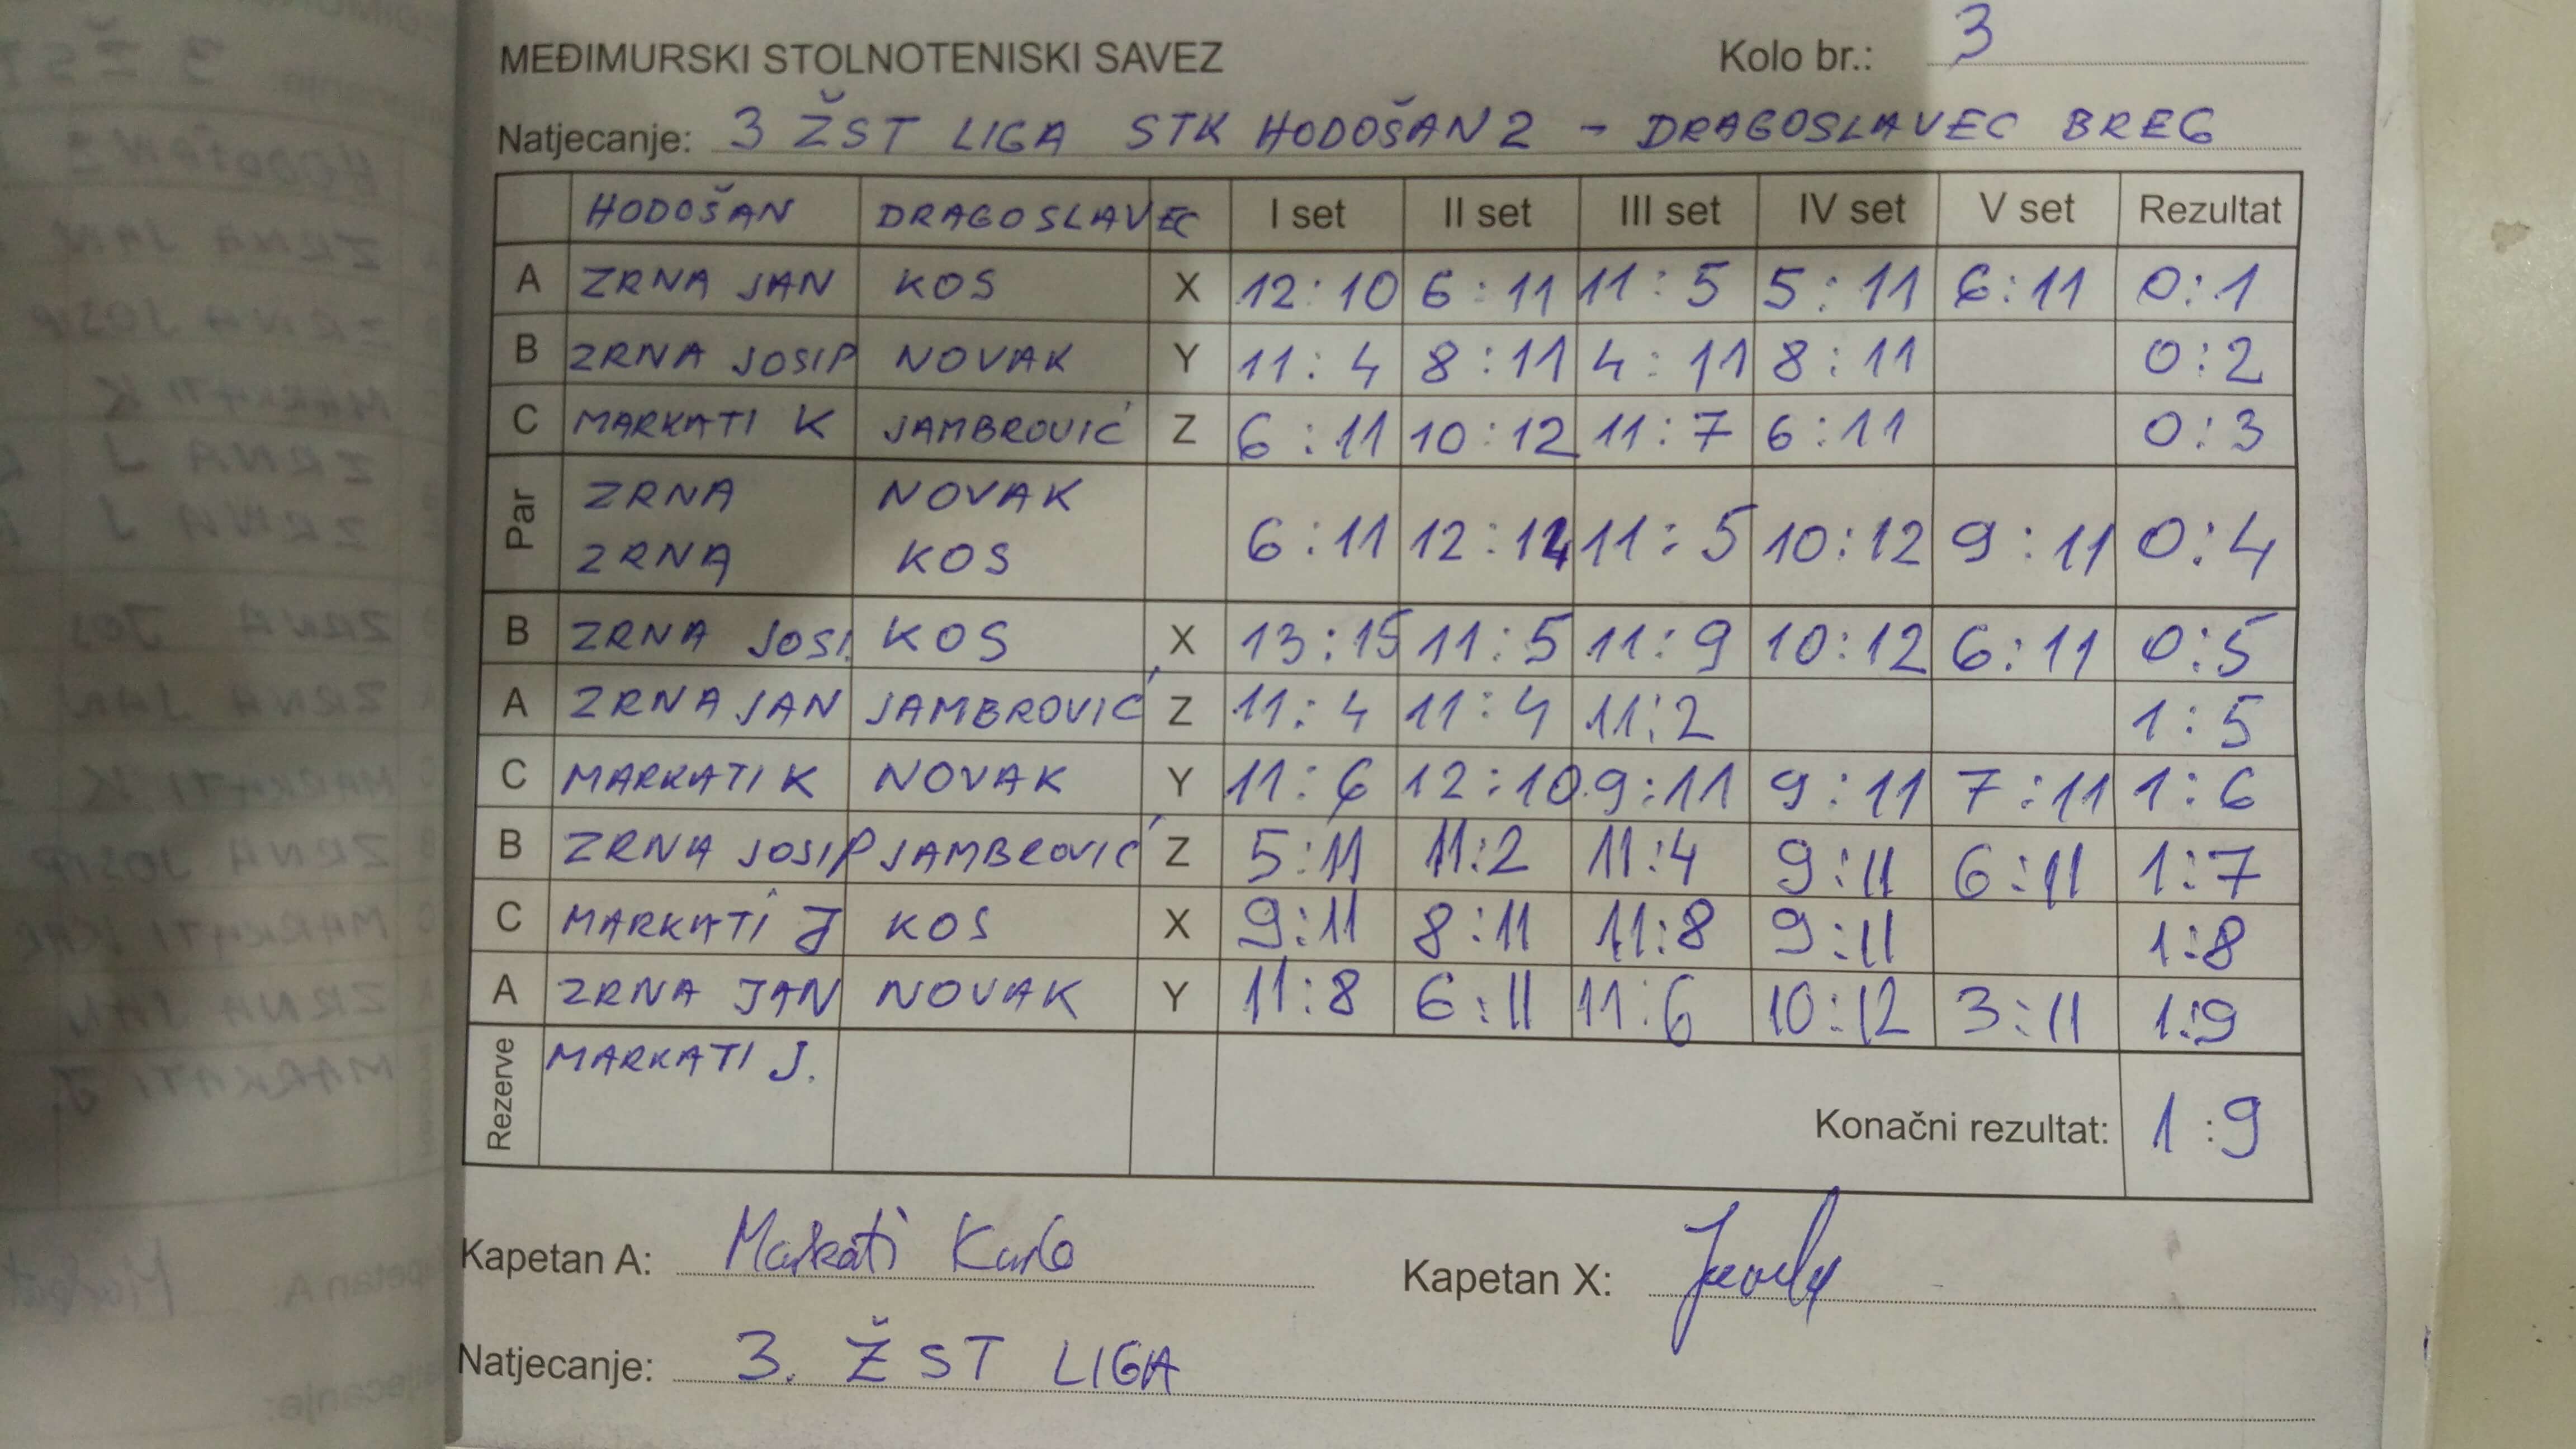 MEĐIMURSKI STOLNOTENISKI SAVEZ Kolo br.: 3
Natjecanje: 3 ŽST LIGA STK HODOŠAN 2 - DRAGOSLAVEC BREG
HODOŠAN DRAGOSLAVEC I set II set III set IV set V set Rezultat
A ZRNA JAN KOS X 12:10 6:11 11:5 5:11 6:11 0:1
B ZRNA JOSIP NOVAK Y 11:4 8:11 4:11 8:11 0:2
C MARKATI K JAMBROVIĆ Z 6:11 10:12 11:7 6:11 0:3
Par ZRNA NOVAK
ZRNA KOS 6:11 12:14 11:5 10:12 9:11 0:4
B ZRNA JOSI. KOS X 13:15 11:5 11:9 10:12 6:11 0:5
A ZRNA JAN JAMBROVIĆ Z 11:4 11:4 11:2 1:5
C MARKATI K NOVAK Y 11:6 12:10 9:11 9:11 7:11 1:6
B ZRNA JOSIP JAMBROVIĆ Z 5:11 11:2 11:4 9:11 6:11 1:7
C MARKATI J KOS X 9:11 8:11 11:8 9:11 1:8
A ZRNA JAN NOVAK Y 11:8 6:11 11:6 10:12 3:11 1:9
Rezerve MARKATI J.
Konačni rezultat: 1:9
Kapetan A: Markati Karlo Kapetan X:
Natjecanje: 3. ŽST LIGA